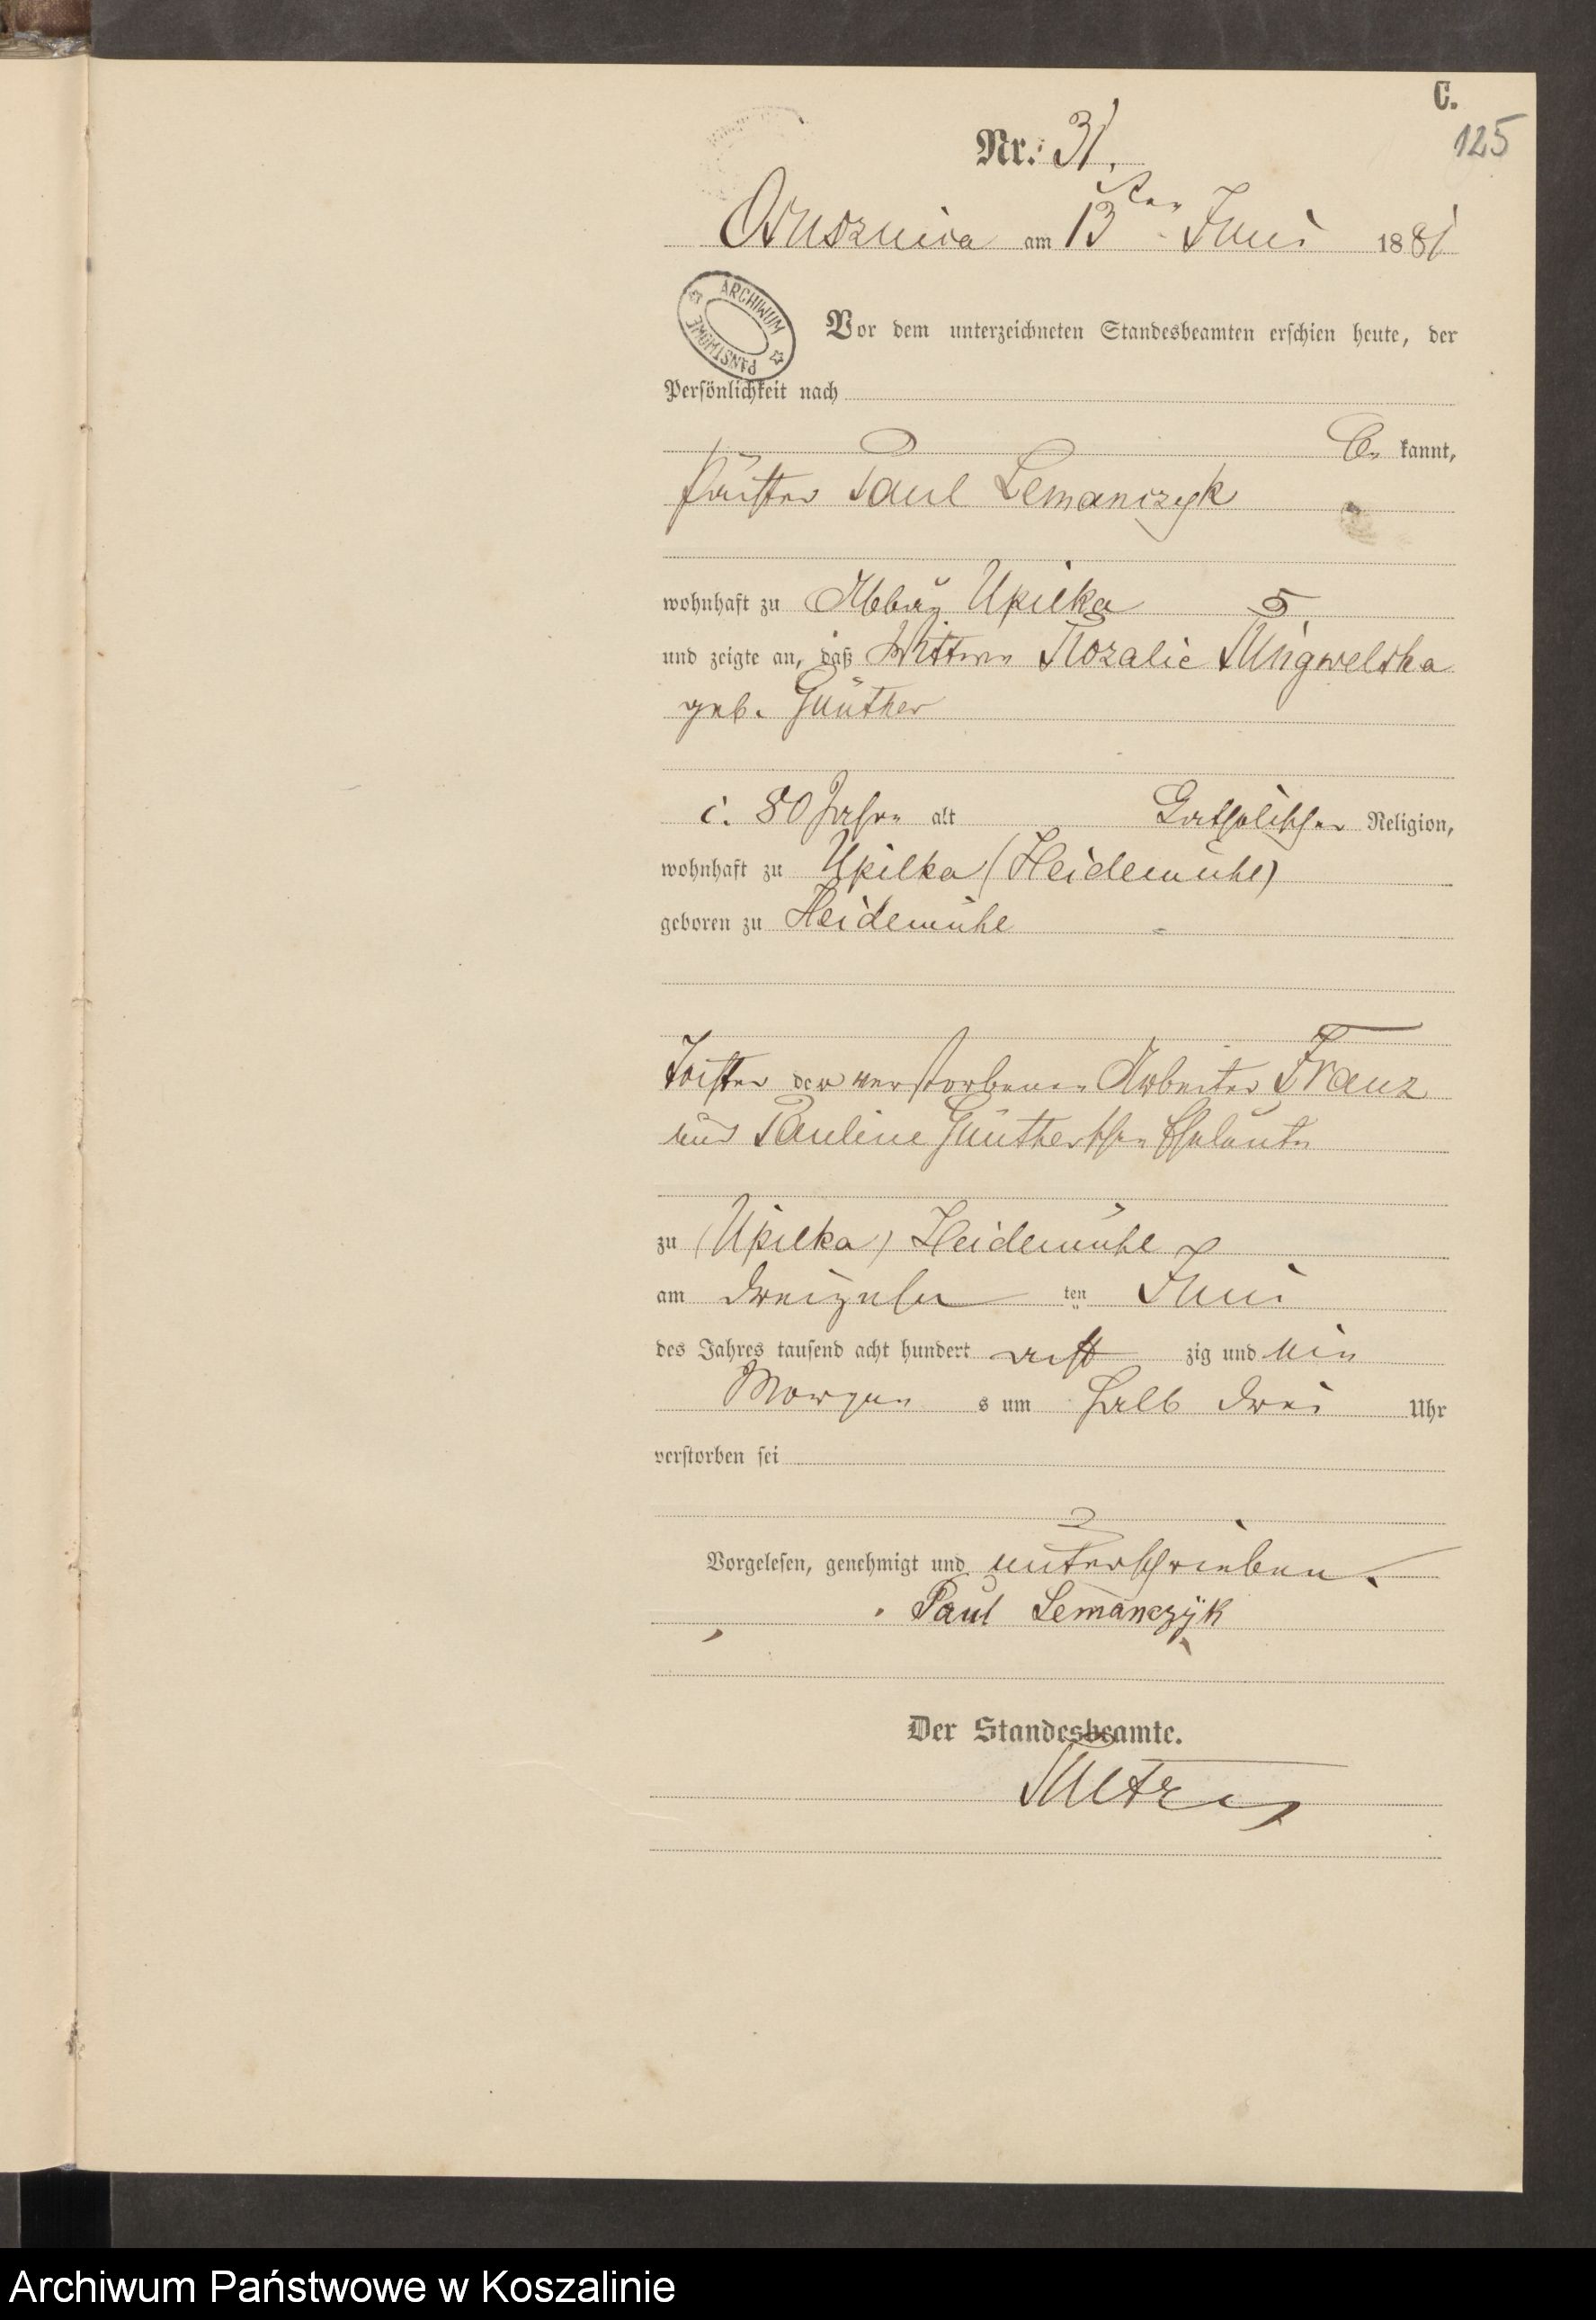 C.
125
Nr. 31.
Ossusznica am 13ten Juni 1881
ARCHIWUM PAŃSTWOWE
Vor dem unterzeichneten Standesbeamten erschien heute, der
Persönlichkeit nach
be kannt,
Paul Lemanczyk
wohnhaft zu Abbau Upilka
und zeigte an, daß Wittwe Rozalie
geb. Günther
c. 80 Jahre alt Catholischer Religion,
wohnhaft zu Upilka (Heidemühl)
geboren zu Heidemühl
Tochter der verstorbenen Arbeiter Franz
und Pauline Güntherschen Eheleute
zu (Upilka) Heidemühl
am dreizehn ten Juni
des Jahres tausend acht hundert acht zig und ein
Morgen s um halb drei Uhr
verstorben sei
Vorgelesen, genehmigt und unterschrieben.
Paul Lemanczyk
Der Standesbeamte.
Archiwum Państwowe w Koszalinie